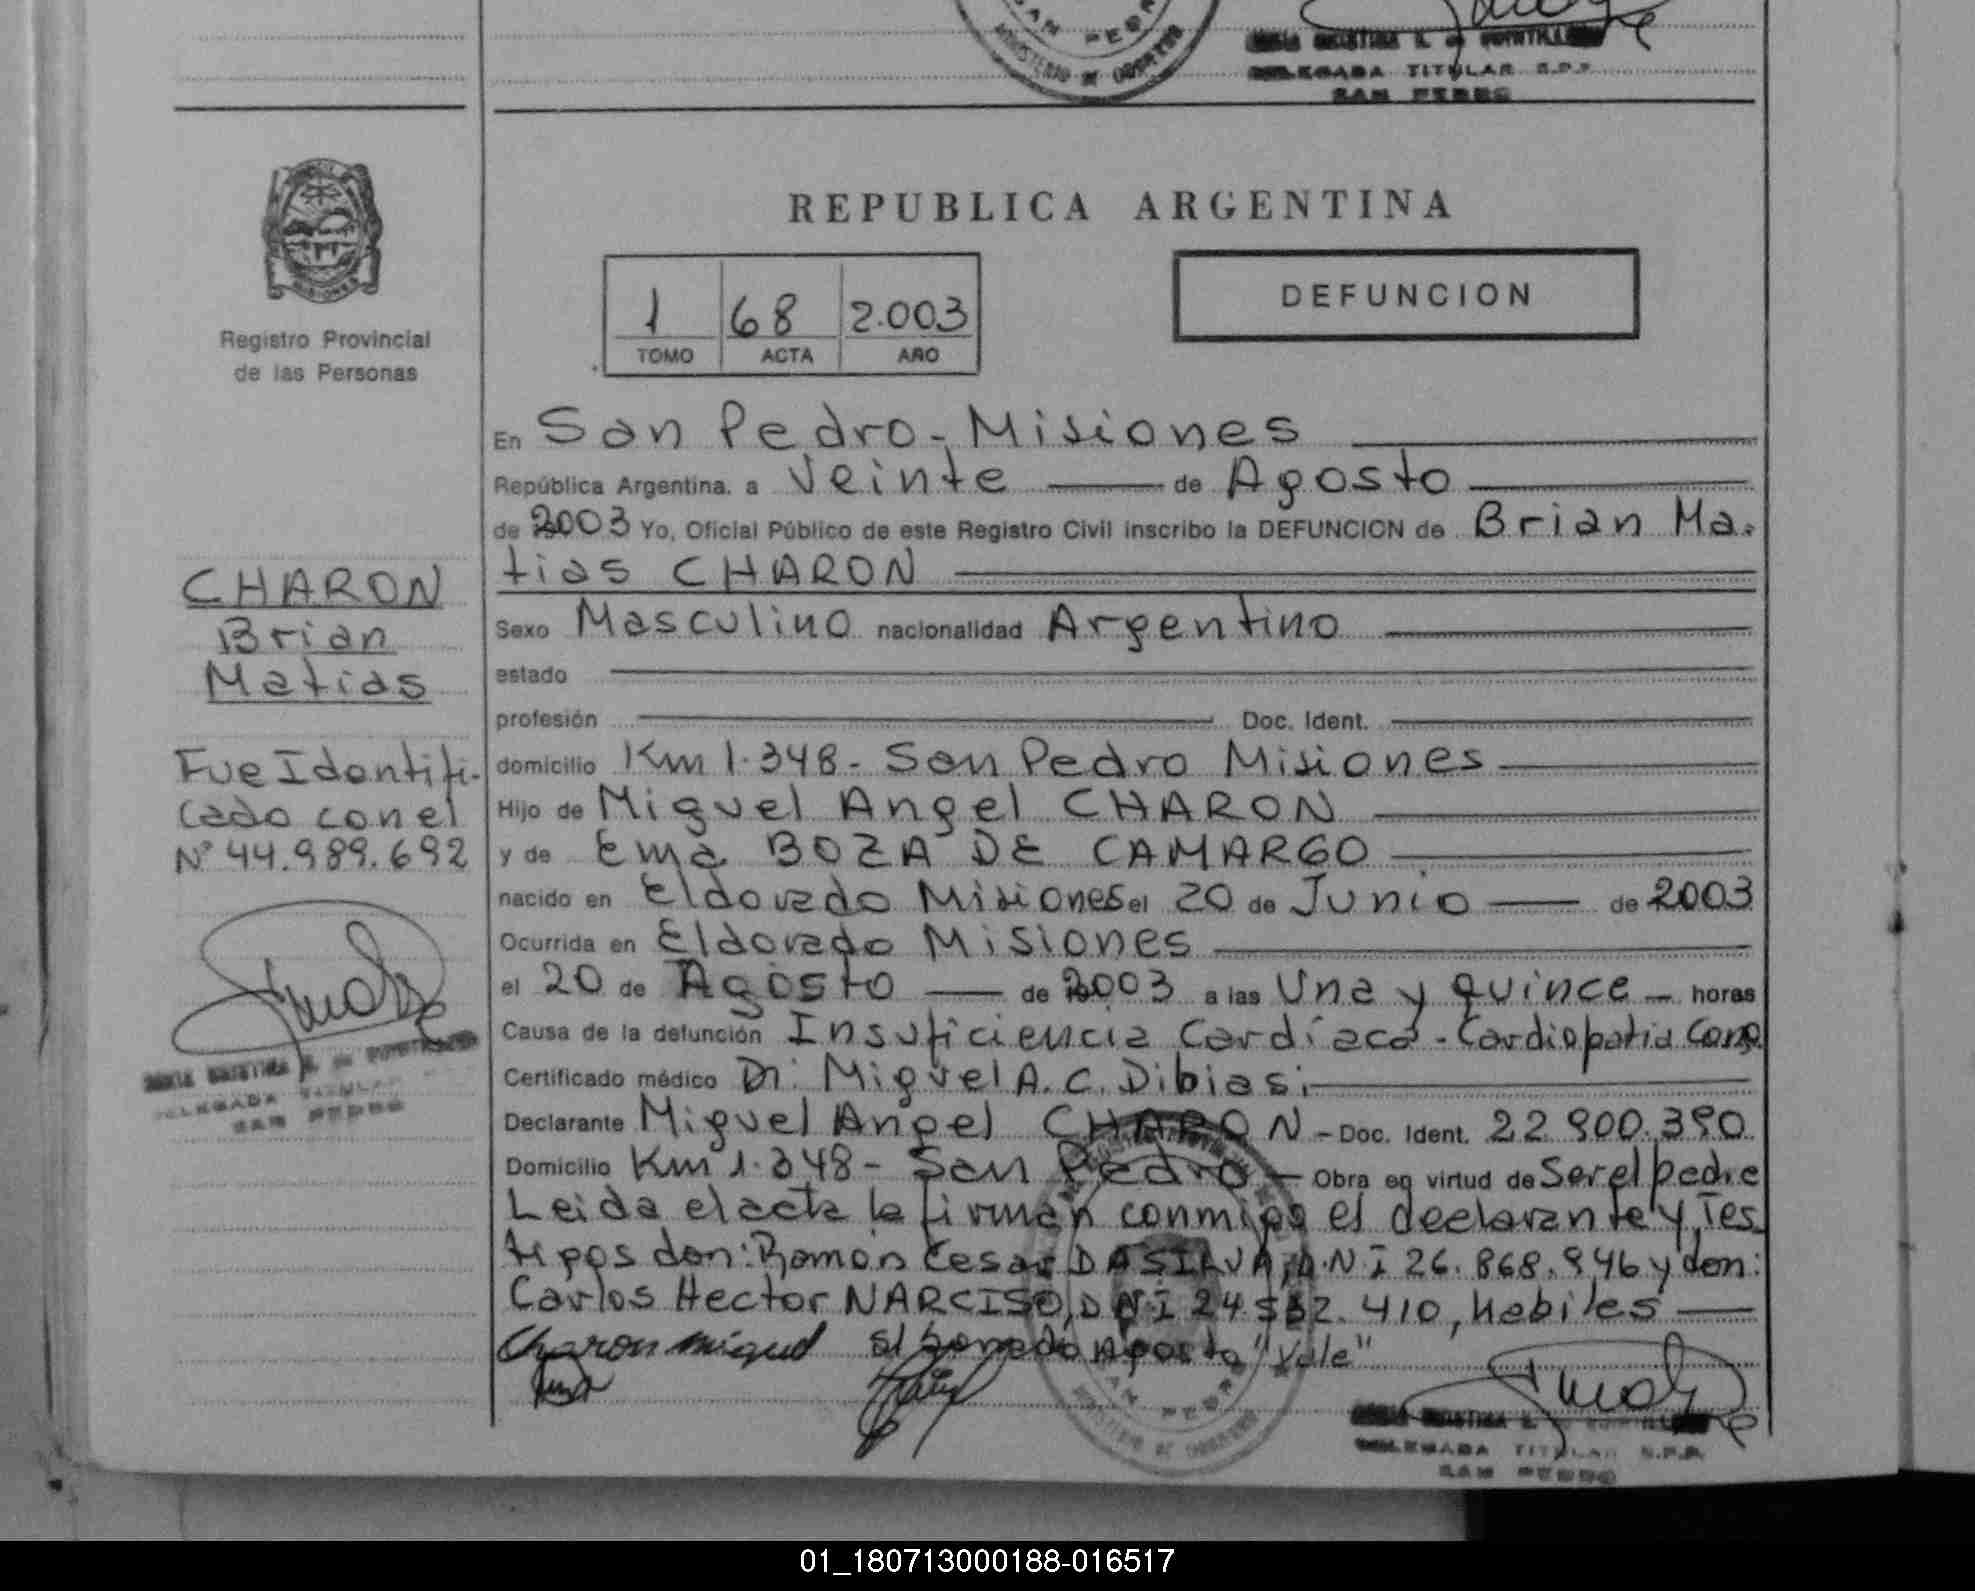 SAN PEDRO
MINISTERIO DE GOBIERNO
DELEGADA TITULAR R.P.P.
SAN PEDRO
MISIONES
Registro Provincial
de las Personas
REPUBLICA ARGENTINA
1 68 2.003
TOMO ACTA AÑO
DEFUNCION
En San Pedro - Misiones
República Argentina, a Veinte de Agosto
de 2003 Yo, Oficial Público de este Registro Civil inscribo la DEFUNCION de Brian Ma-
tias CHARON
CHARON
Brian
Matias
Fue Identifi-
cado con el
N° 44.989.692
DELEGADA TITULAR
SAN PEDRO
Sexo Masculino nacionalidad Argentino
estado
profesión Doc. Ident.
domicilio Km 1.348 - San Pedro Misiones
Hijo de Miguel Angel CHARON
y de Ema BOZA DE CAMARGO
nacido en Eldorado Misiones el 20 de Junio de 2003
Ocurrida en Eldorado Misiones
el 20 de Agosto de 2003 a las Una y quince horas
Causa de la defunción Insuficiencia Cardíaca - Cardiopatia Cong.
Certificado médico Dr. Miguel A. C. Dibiasi
Declarante Miguel Angel CHARON - Doc. Ident. 22.900.390
Domicilio Km 1.348 - San Pedro - Obra en virtud de Ser el padre
Leida el acta la firman conmigo el declarante y Tes
tigos don: Ramón Cesar DA SILVA, D.N.I 26.868.946 y don:
Carlos Hector NARCISO, DNI 24.532.410, habiles
Charon miguel "Vale"
SAN PEDRO
MINISTERIO DE GOBIERNO
DELEGADA TITULAR R.P.P.
SAN PEDRO
01_180713000188-016517